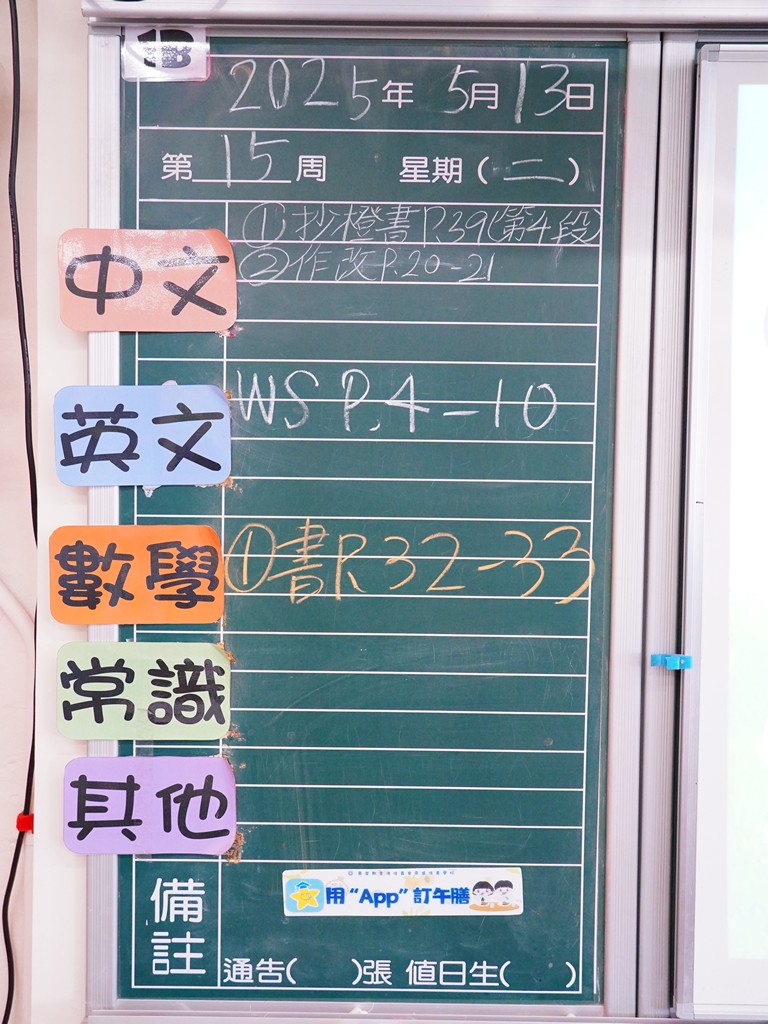 1B
2025年 5月13日
第15周 星期(二)
中文
①抄橙書P.39(第4段)
②作改P.20-21
英文
WS P.4-10
數學
①書P.32-33
常識
其他
備註
用“App”訂午膳
通告( )張 值日生( )